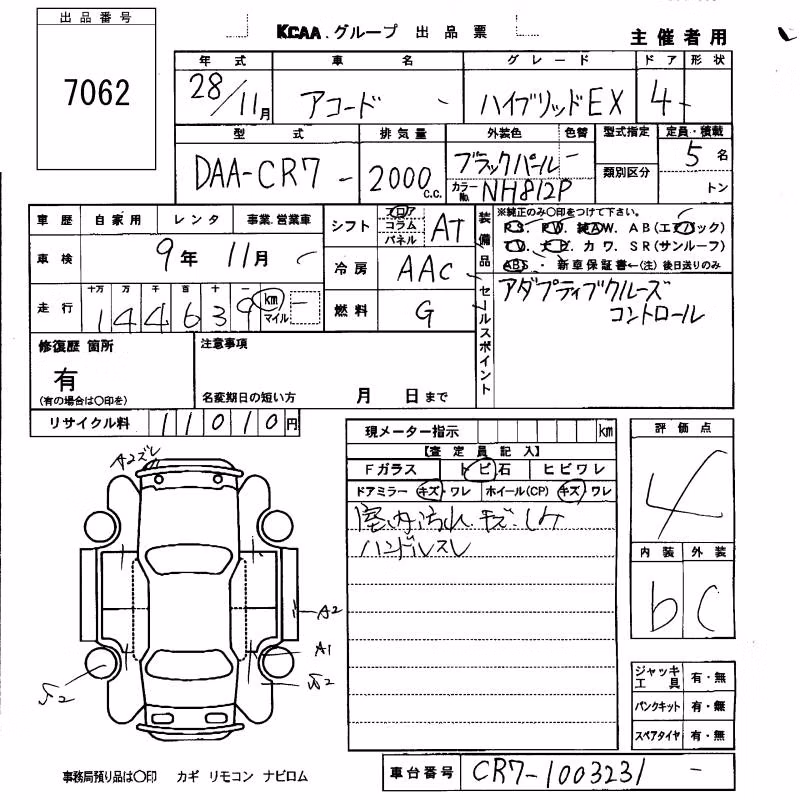 出品番号
7062
KCAA.グループ 出品票
主催者用
年式 車名 グレード ドア 形状
28/11月 アコード - ハイブリッドEX 4 -
型式 排気量 外装色 色替 型式指定 定員・積載
DAA-CR7 - 2000 c.c. ブラックパール - 類別区分 5名
カラーNo. NH812P トン
車歴 自家用 レンタ 事業.営業車
車検 9年 11月
走行 十万 万 千 百 十 一
144639 km マイル -
シフト フロア コラム パネル AT
冷房 AAC
燃料 G
装備品
※純正のみ○印をつけて下さい。
P.S. P.W. 純A.W. A B (エアバック)
T V. ナビ. カワ. S R (サンルーフ)
ABS ・ 新車保証書←(注) 後日送りのみ
セールスポイント
アダプティブクルーズ
コントロール
修復歴 箇所
有
(有の場合は○印を)
注意事項
名変期日の短い方 月 日まで
リサイクル料 11010円
現メーター指示 km
【査定員記入】
Fガラス トビ石 ヒビワレ
ドアミラー キズ・ワレ ホイール(CP) キズ・ワレ
室内汚れ.キズ.シケ
ハンドルスレ
評価点
4
内装 外装
b C
A2ズレ
A2
A1
ジャッキ工具 有・無
パンクキット 有・無
スペアタイヤ 有・無
事務局預り品は○印 カギ リモコン ナビロム
車台番号 CR7-1003231 -